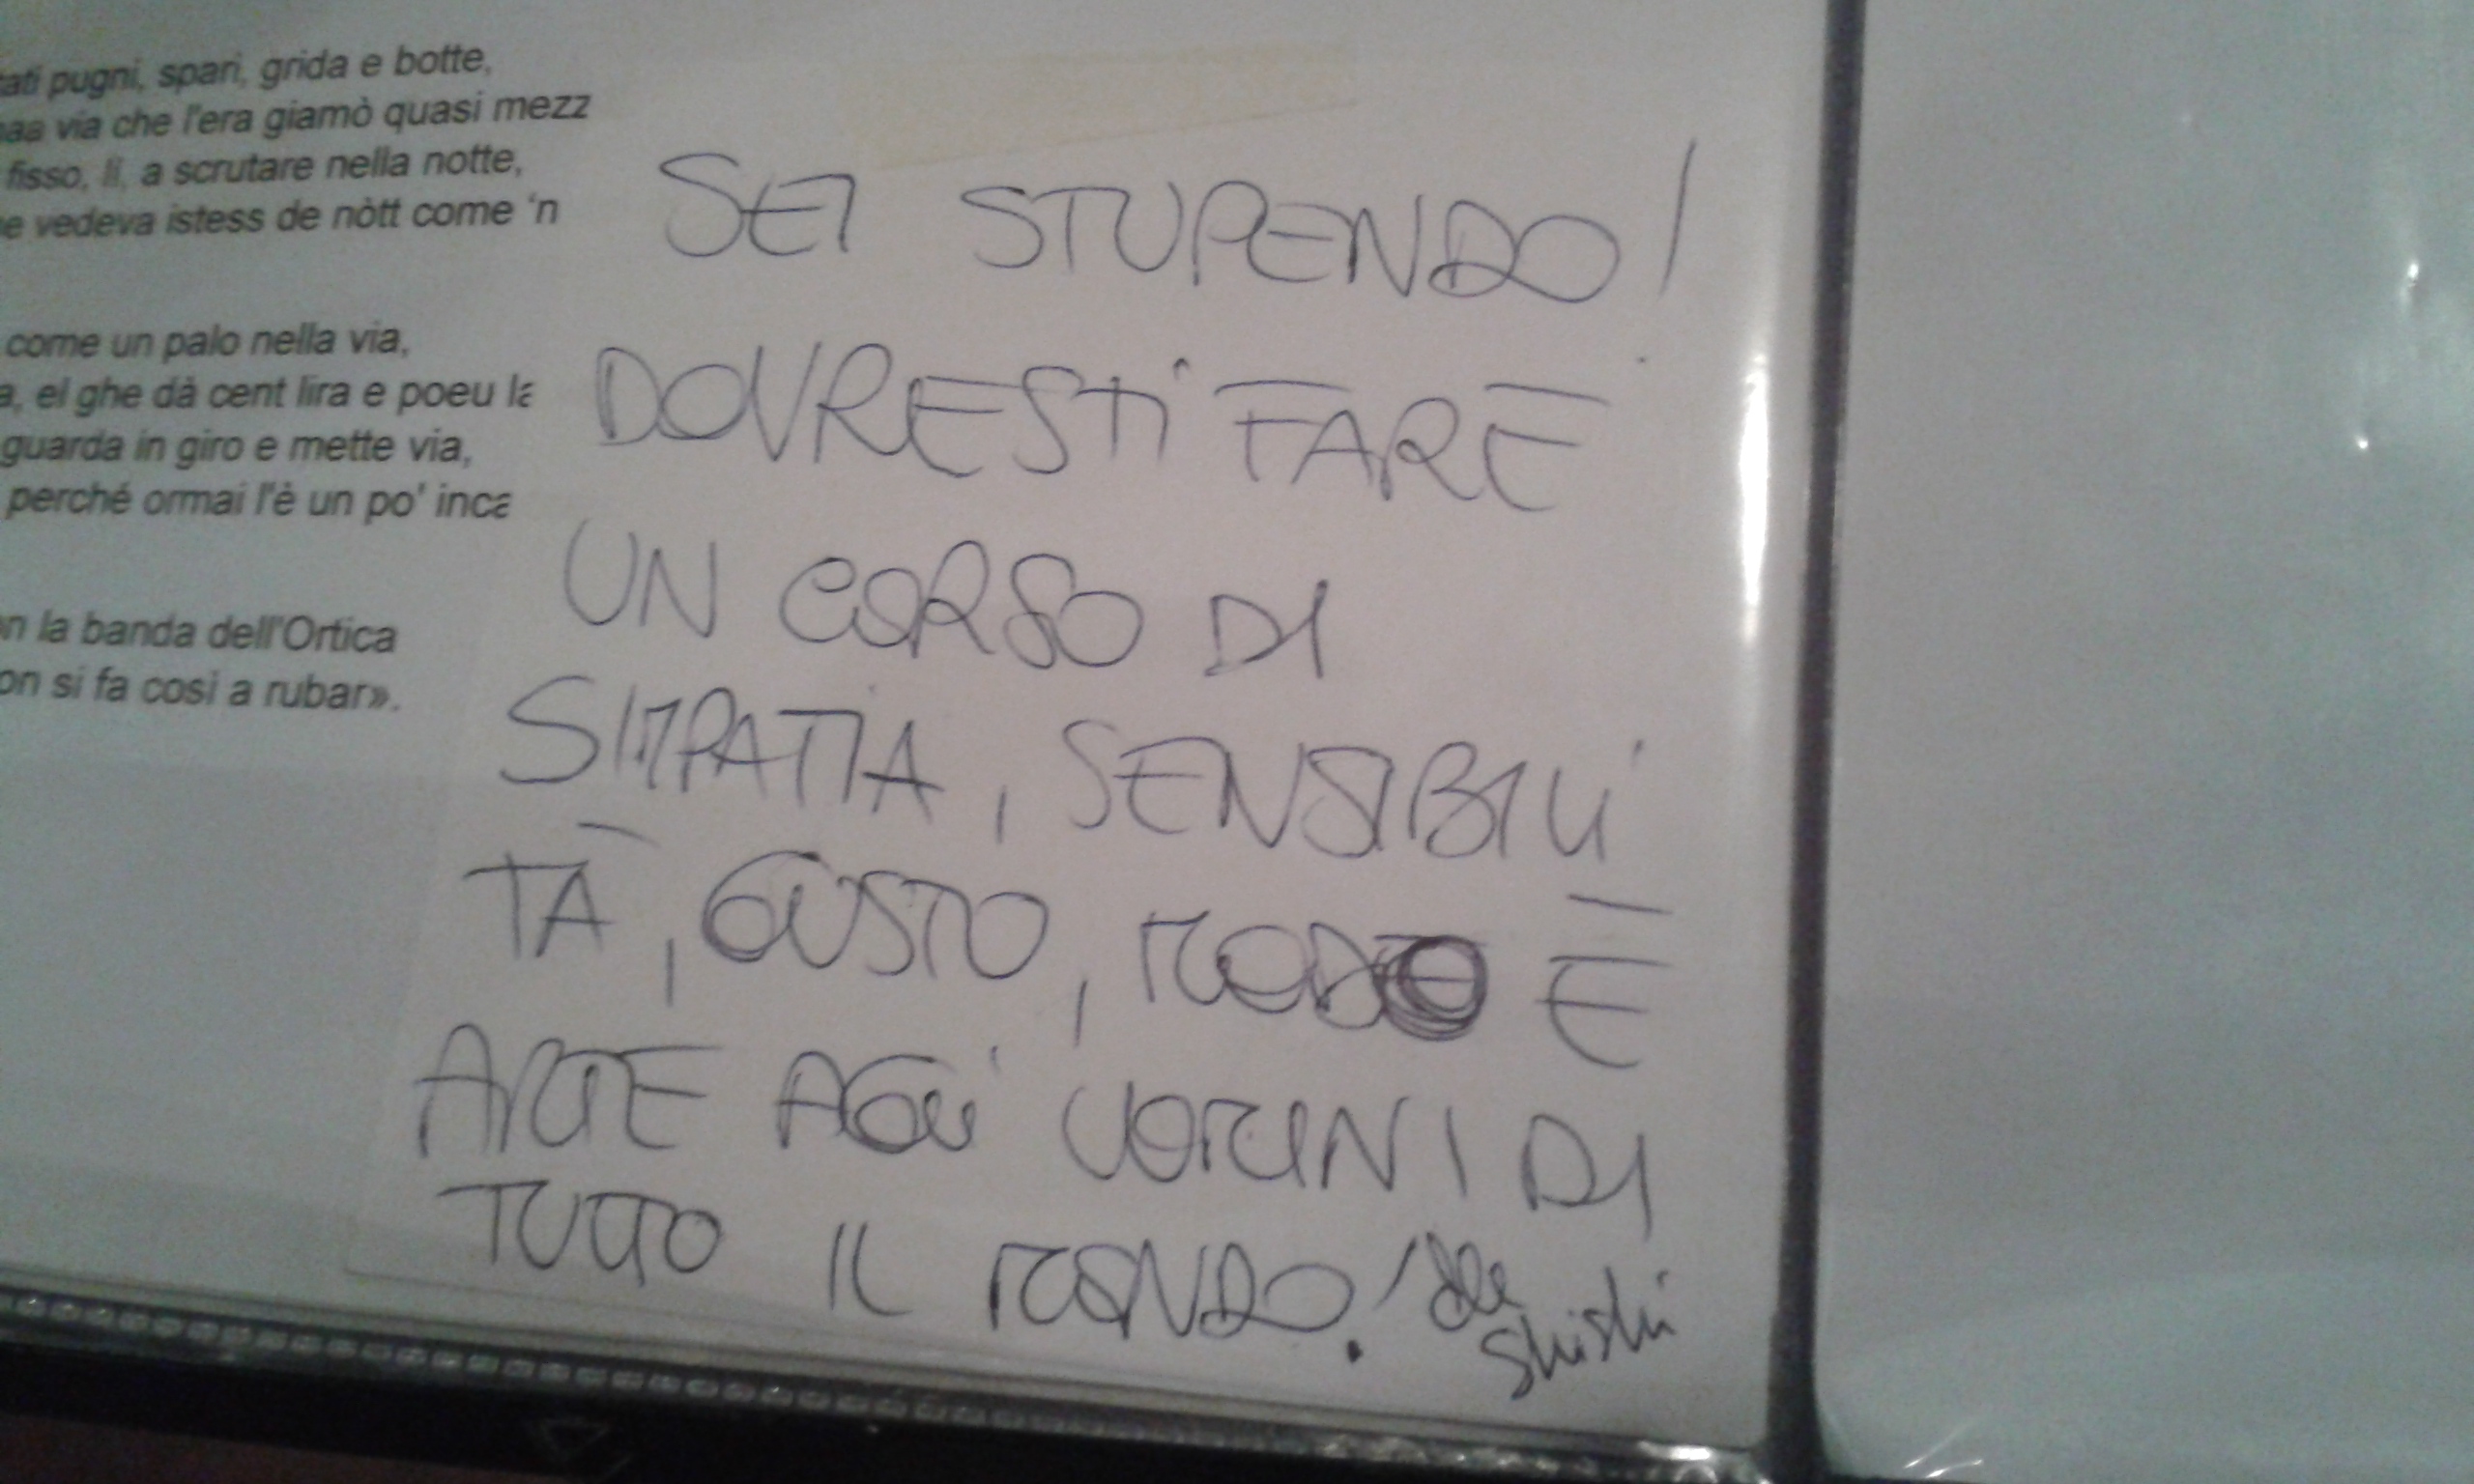 pugni, spari, grida e botte,
via che l'era giamò quasi mezz
fisso, lì, a scrutare nella notte,
vedeva istess de nòtt come 'n
come un palo nella via,
el ghe dà cent lira e poeu
guarda in giro e mette via,
perché ormai l'è un po'
la banda dell'Ortica
si fa così a rubar».
SEI STUPENDO!
DOVRESTI FARE
UN CORSO DI
SIMPATIA, SENSIBILI
TÀ, GUSTO, MODO E
ARTE AGLI UOMINI DI
TUTTO IL MONDO!